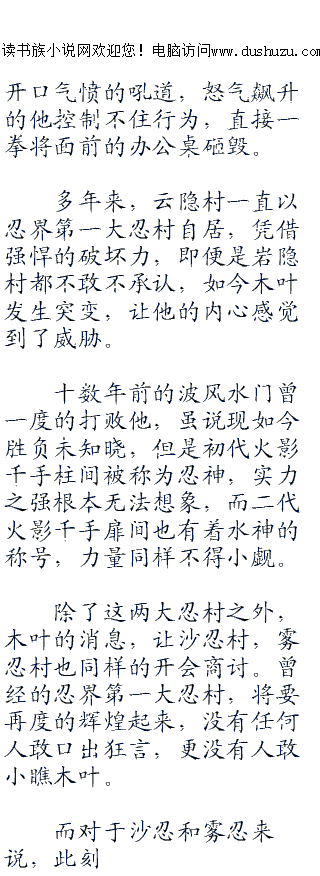 读书族小说网欢迎您！电脑访问www.dushuzu.com
开口气愤的吼道，怒气飙升
的他控制不住行为，直接一
拳将面前的办公桌砸毁。
多年来，云隐村一直以
忍界第一大忍村自居，凭借
强悍的破坏力，即便是岩隐
村都不敢不承认，如今木叶
发生突变，让他的内心感觉
到了威胁。
十数年前的波风水门曾
一度的打败他，虽说现如今
胜负未知晓，但是初代火影
千手柱间被称为忍神，实力
之强根本无法想象，而二代
火影千手扉间也有着水神的
称号，力量同样不得小觑。
除了这两大忍村之外，
木叶的消息，让沙忍村，雾
忍村也同样的开会商讨。曾
经的忍界第一大忍村，将要
再度的辉煌起来，没有任何
人敢口出狂言，更没有人敢
小瞧木叶。
而对于沙忍和雾忍来
说，此刻